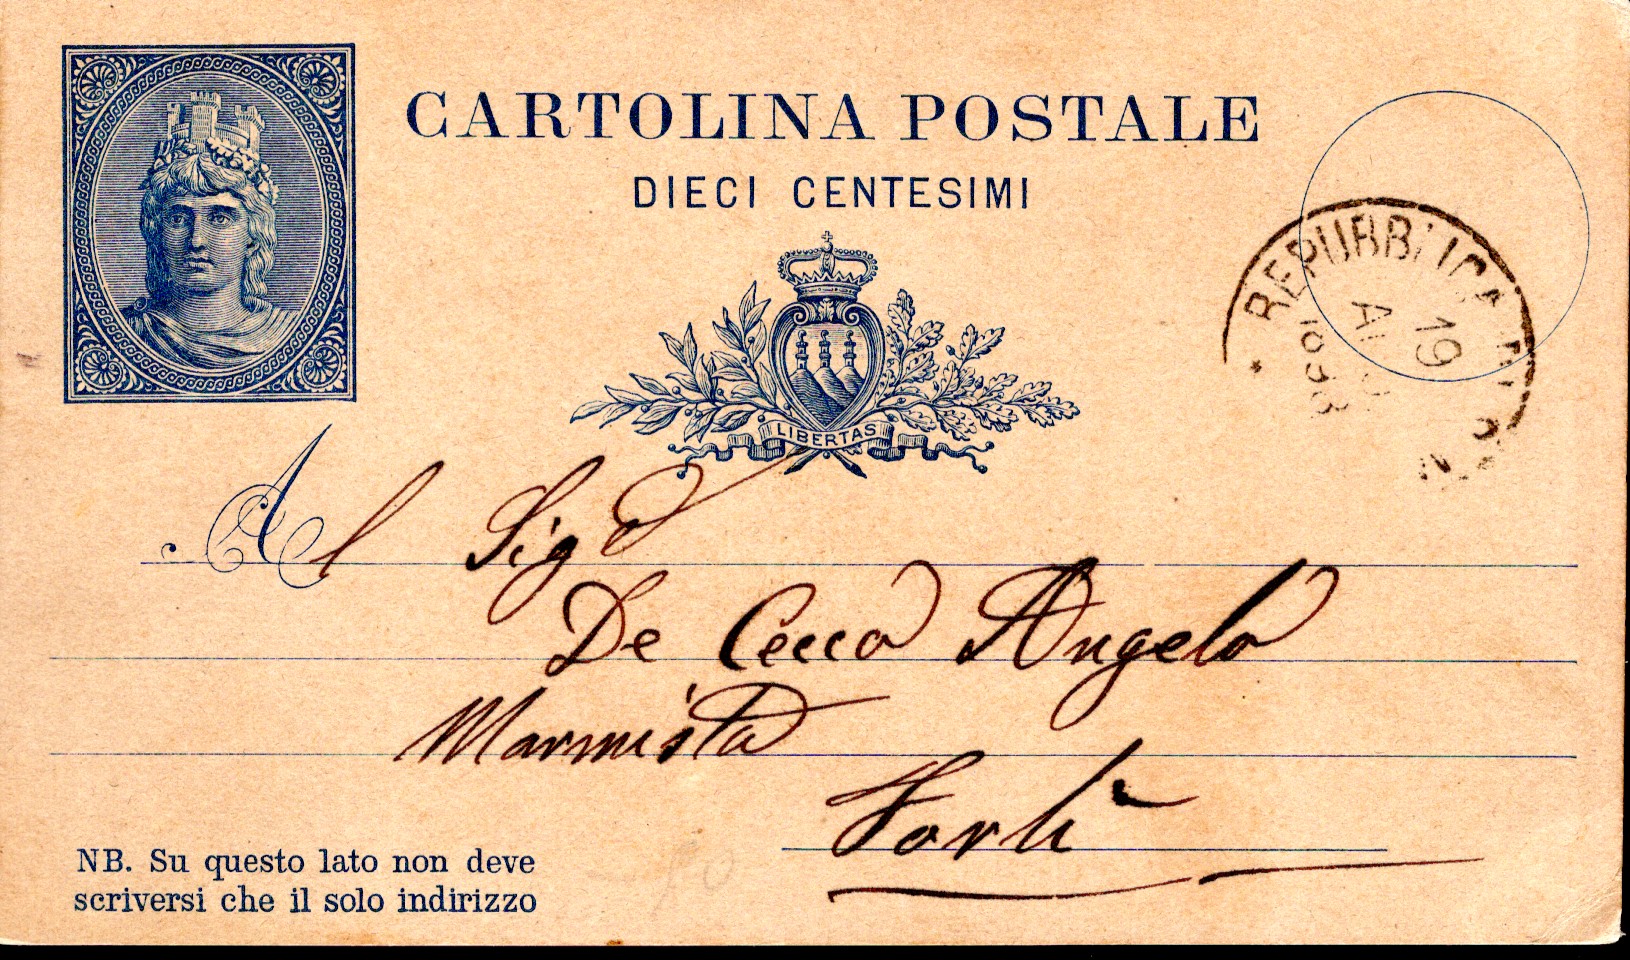 CARTOLINA POSTALE
DIECI CENTESIMI
REPUBBLICA
19
LIBERTAS
Al Sigr
De Cecco Angelo
Marmista
Forlì
NB. Su questo lato non deve
scriversi che il solo indirizzo